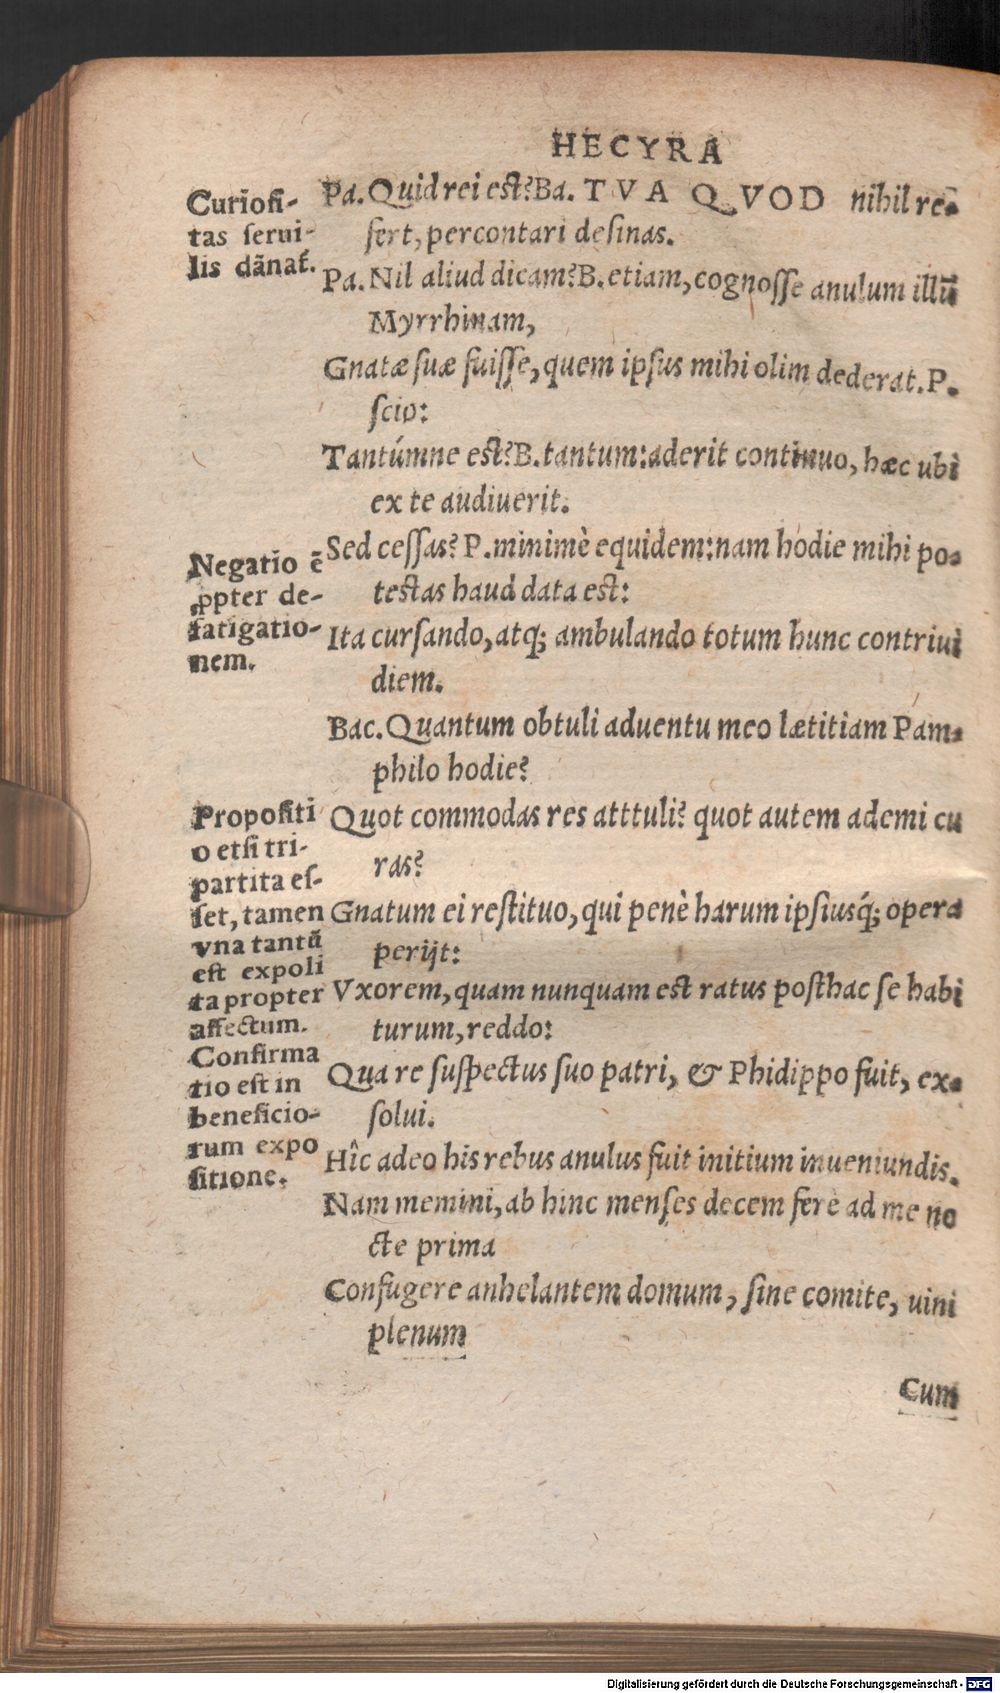 HECYRA
Curiosi-
tas serui-
lis dãnat.
Pa. Quid rei est? Ba. TVA QVOD nihil re-
fert, percontari desinas.
Pa. Nil aliud dicam? B. etiam, cognosse anulum illũ
Myrrhinam,
Gnatæ suæ fuisse, quem ipsus mihi olim dederat. P.
scio:
Tantúmne est? B. tantum: aderit continuo, hæc ubi
ex te audiuerit.
Negatio ẽ
ꝓpter de-
fatigatio-
nem.
Sed cessas? P. minimè equidem: nam hodie mihi po-
testas haud data est:
Ita cursando, atq; ambulando totum hunc contriui
diem.
Bac. Quantum obtuli aduentu meo lætitiam Pam-
philo hodie?
Propositi
o etsi tri-
partita es-
set, tamen
vna tantũ
est expoli
ta propter
affectum.
Confirma
tio est in
beneficio-
rum expo
sitione.
Quot commodas res atttuli? quot autem ademi cu
ras?
Gnatum ei restituo, qui penè harum ipsiusq́; opera
perijt:
Vxorem, quam nunquam est ratus posthac se habi
turum, reddo:
Qua re suspectus suo patri, & Phidippo fuit, ex-
solui.
Hîc adeo his rebus anulus fuit initium inueniundis.
Nam memini, ab hinc menses decem ferè ad me no
cte prima
Confugere anhelantem domum, sine comite, uini
plenum
Cum
Digitalisierung gefördert durch die Deutsche Forschungsgemeinschaft - DFG